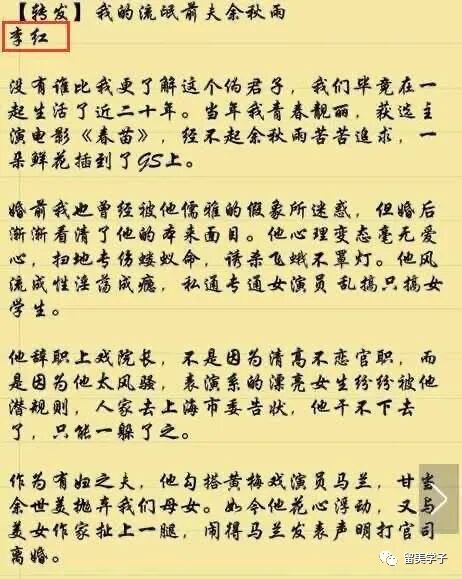 【转发】我的流氓前夫余秋雨
李红
没有谁比我更了解这个伪君子，我们毕竟在一
起生活了近二十年。当年我青春靓丽，获选主
演电影《春苗》，经不起余秋雨苦苦追求，一
朵鲜花插到了GS上。
婚前我也曾经被他儒雅的假象所迷惑，但婚后
渐渐看清了他的本来面目。他心理变态毫无爱
心，扫地专伤蝼蚁命，诱杀飞蛾不罩灯。他风
流成性淫荡成瘾，私通专通女演员 乱搞只搞女
学生。
他辞职上戏院长，不是因为清高不恋官职，而
是因为他太风骚，表演系的漂亮女生纷纷被他
潜规则，人家去上海市委告状，他干不下去
了，只能一躲了之。
作为有妇之夫，他勾搭黄梅戏演员马兰，甘当
余世美抛弃我们母女。如今他花心浮动，又与
美女作家扯上一腿，闹得马兰发表声明打官司
离婚。
留美学子